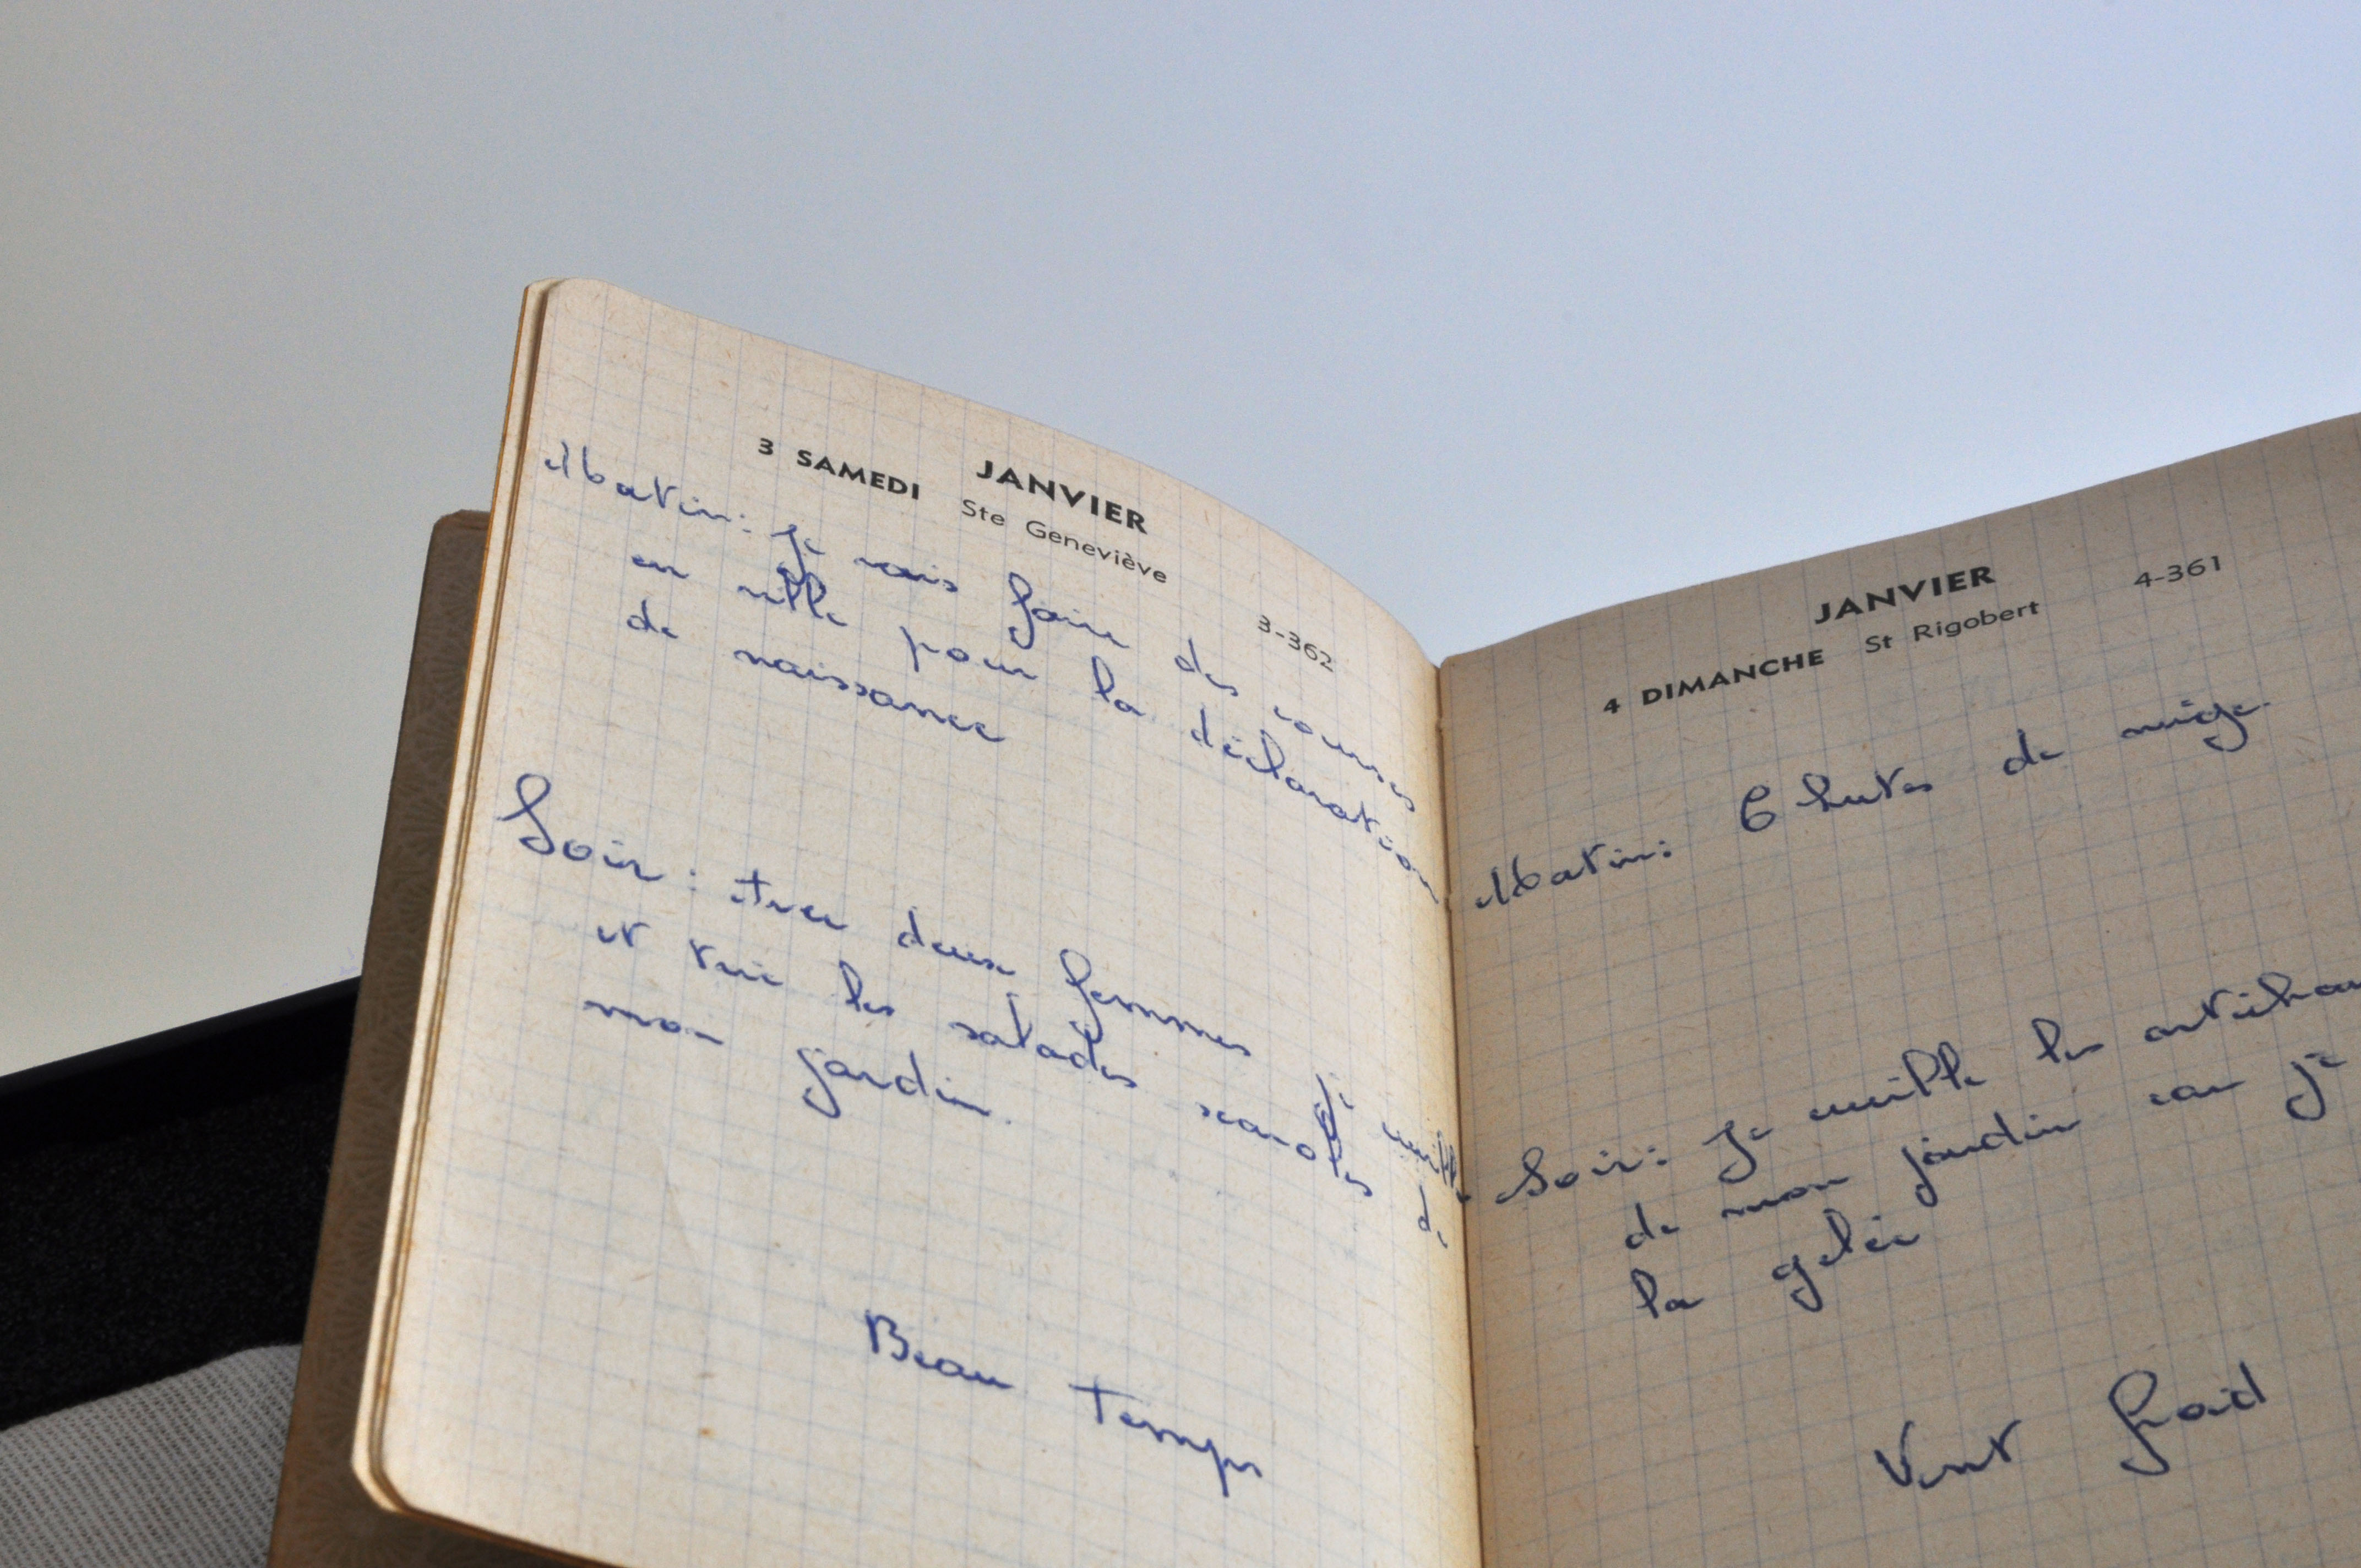 JANVIER
3 SAMEDI Ste Geneviève 3-362
Matin: Je vais faire des courses
en ville pour la déclaration
de naissance
Soir: Avec deux femmes je cueille
et trie les salades scaroles de
mon jardin.
Beau Temps
JANVIER
4 DIMANCHE St Rigobert 4-361
Matin: Chutes de neige.
Soir: Je cueille les artichau
de mon jardin car je
la gelée
Vent froid